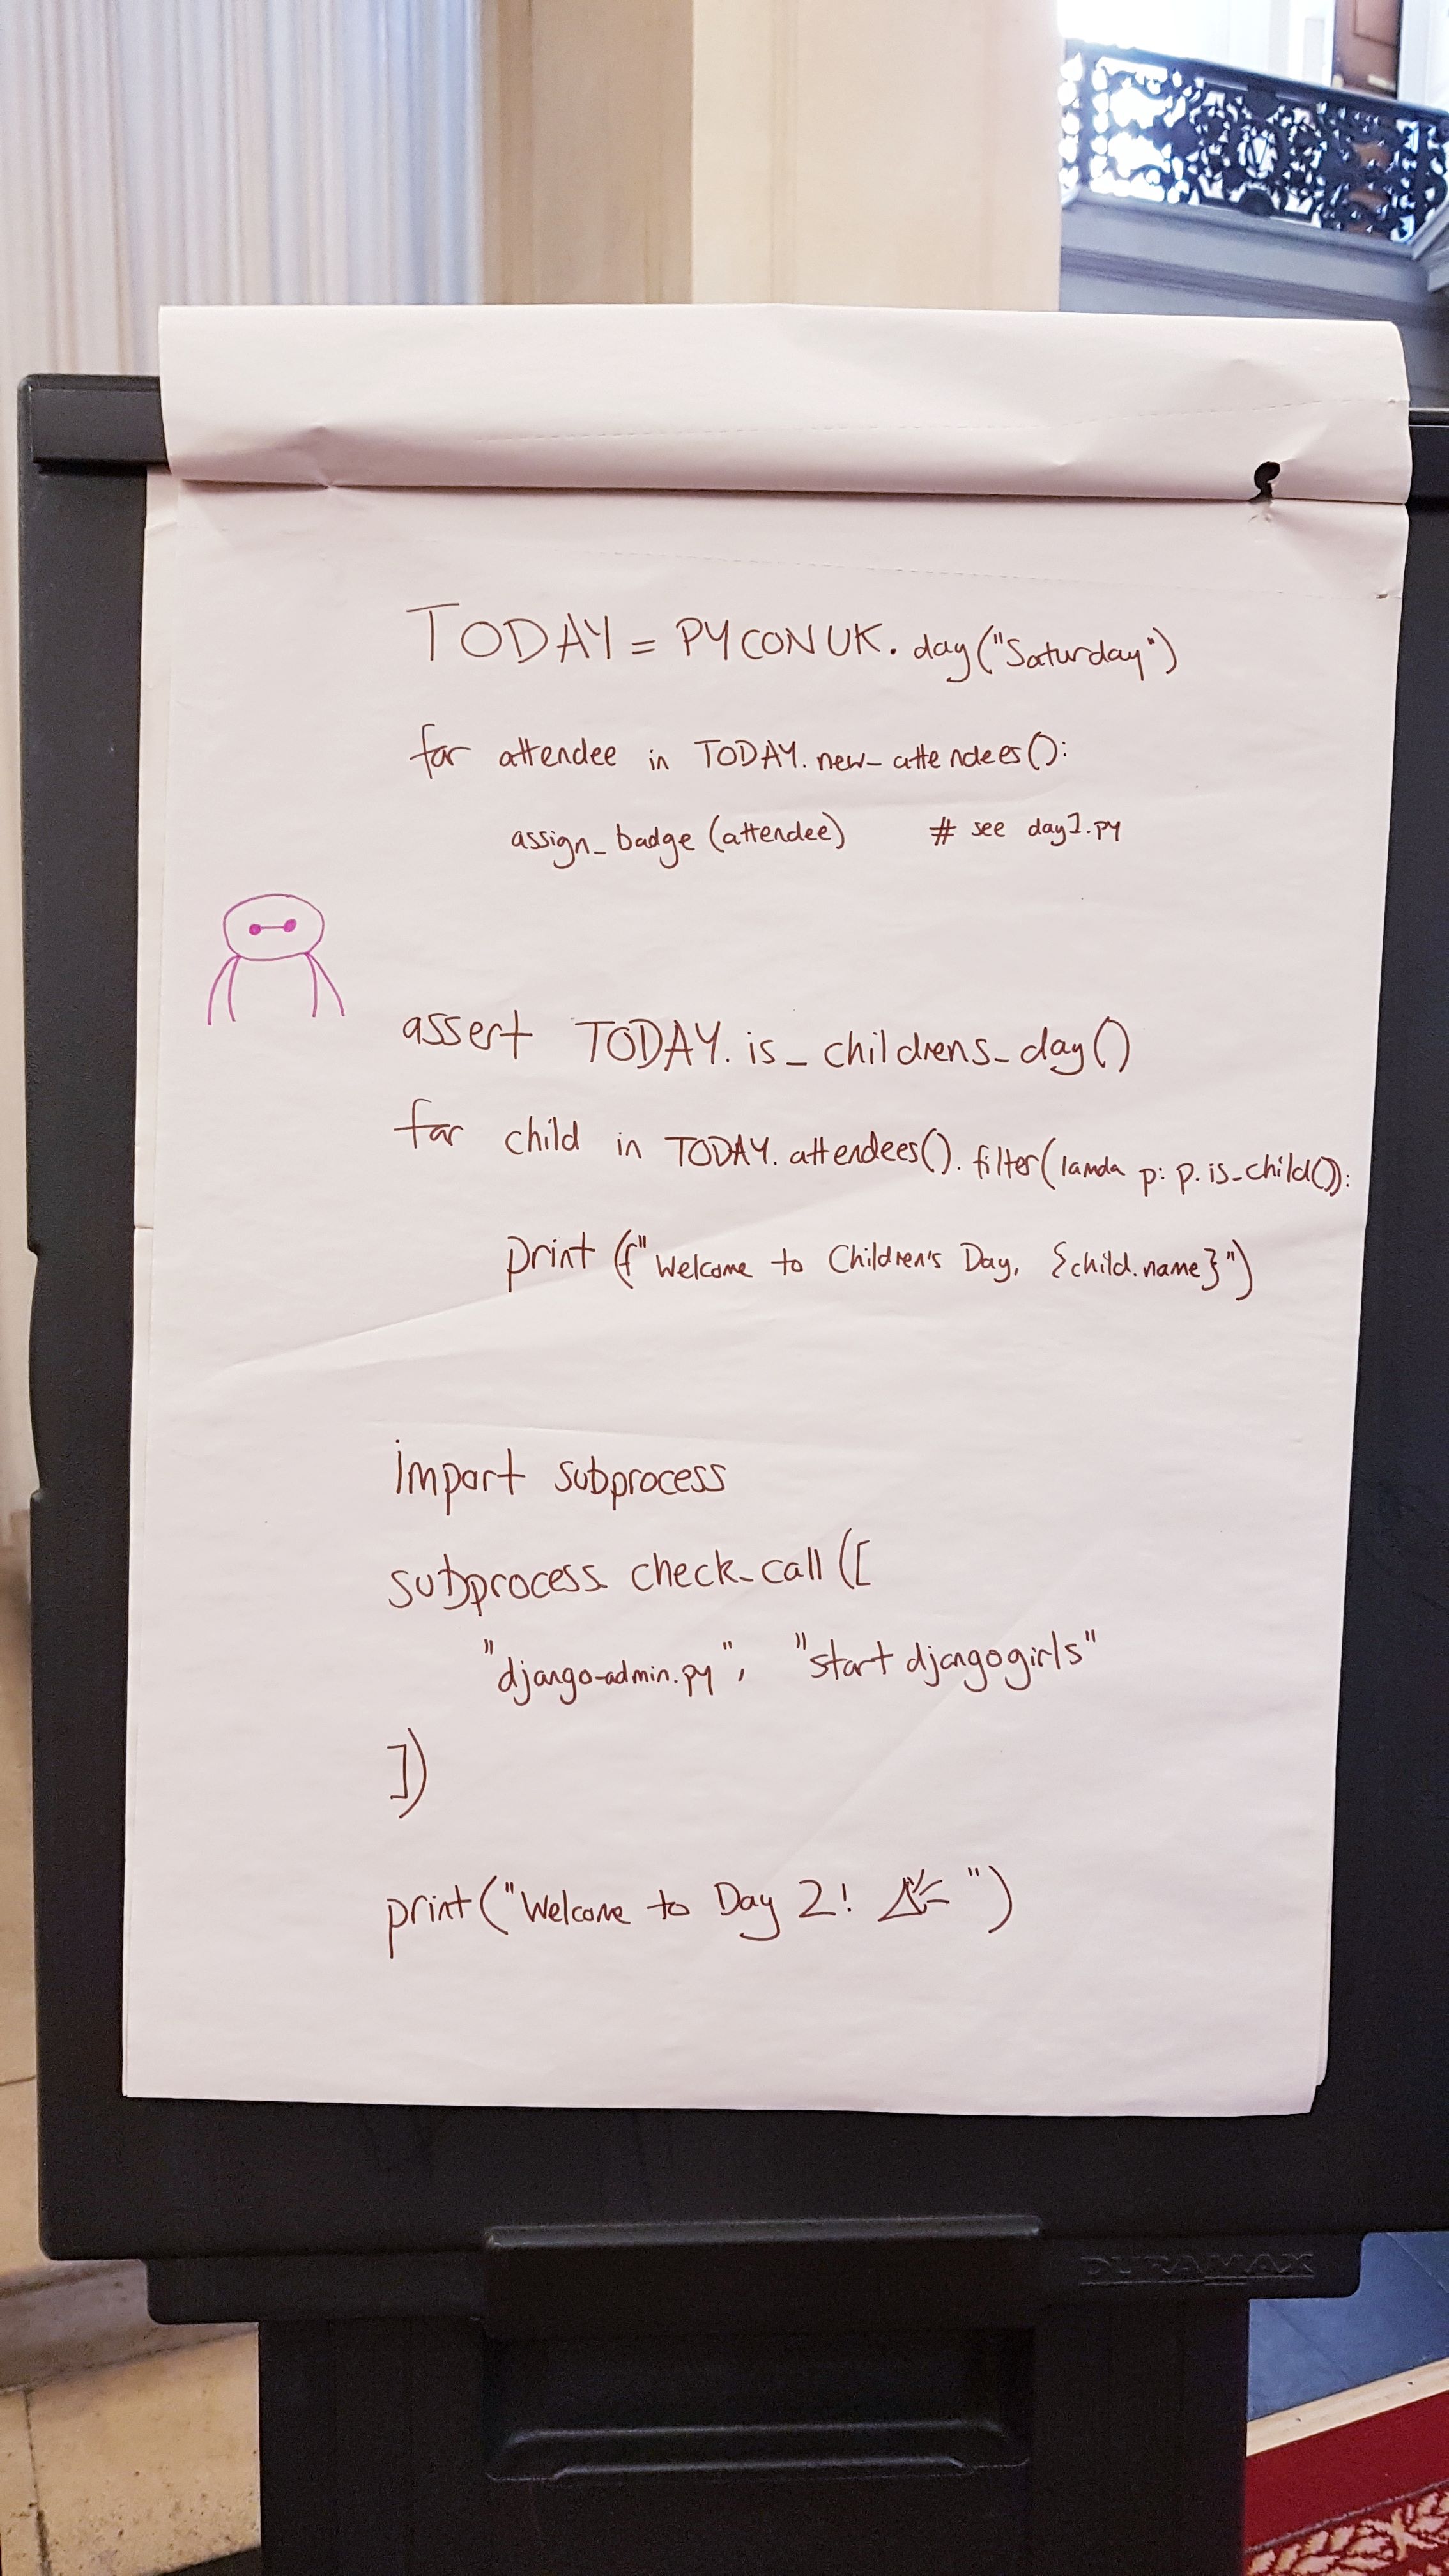 TODAY = PYCONUK.day("Saturday")
for attendee in TODAY.new_attendees():
assign_badge(attendee) # see day1.py
assert TODAY.is_childrens_day()
for child in TODAY.attendees().filter(lamda p: p.is_child()):
print(f"Welcome to Children's Day, {child.name}")
import subprocess
subprocess.check_call([
"django-admin.py", "startdjangogirls"
])
print("Welcome to Day 2! ")
DURAMAX